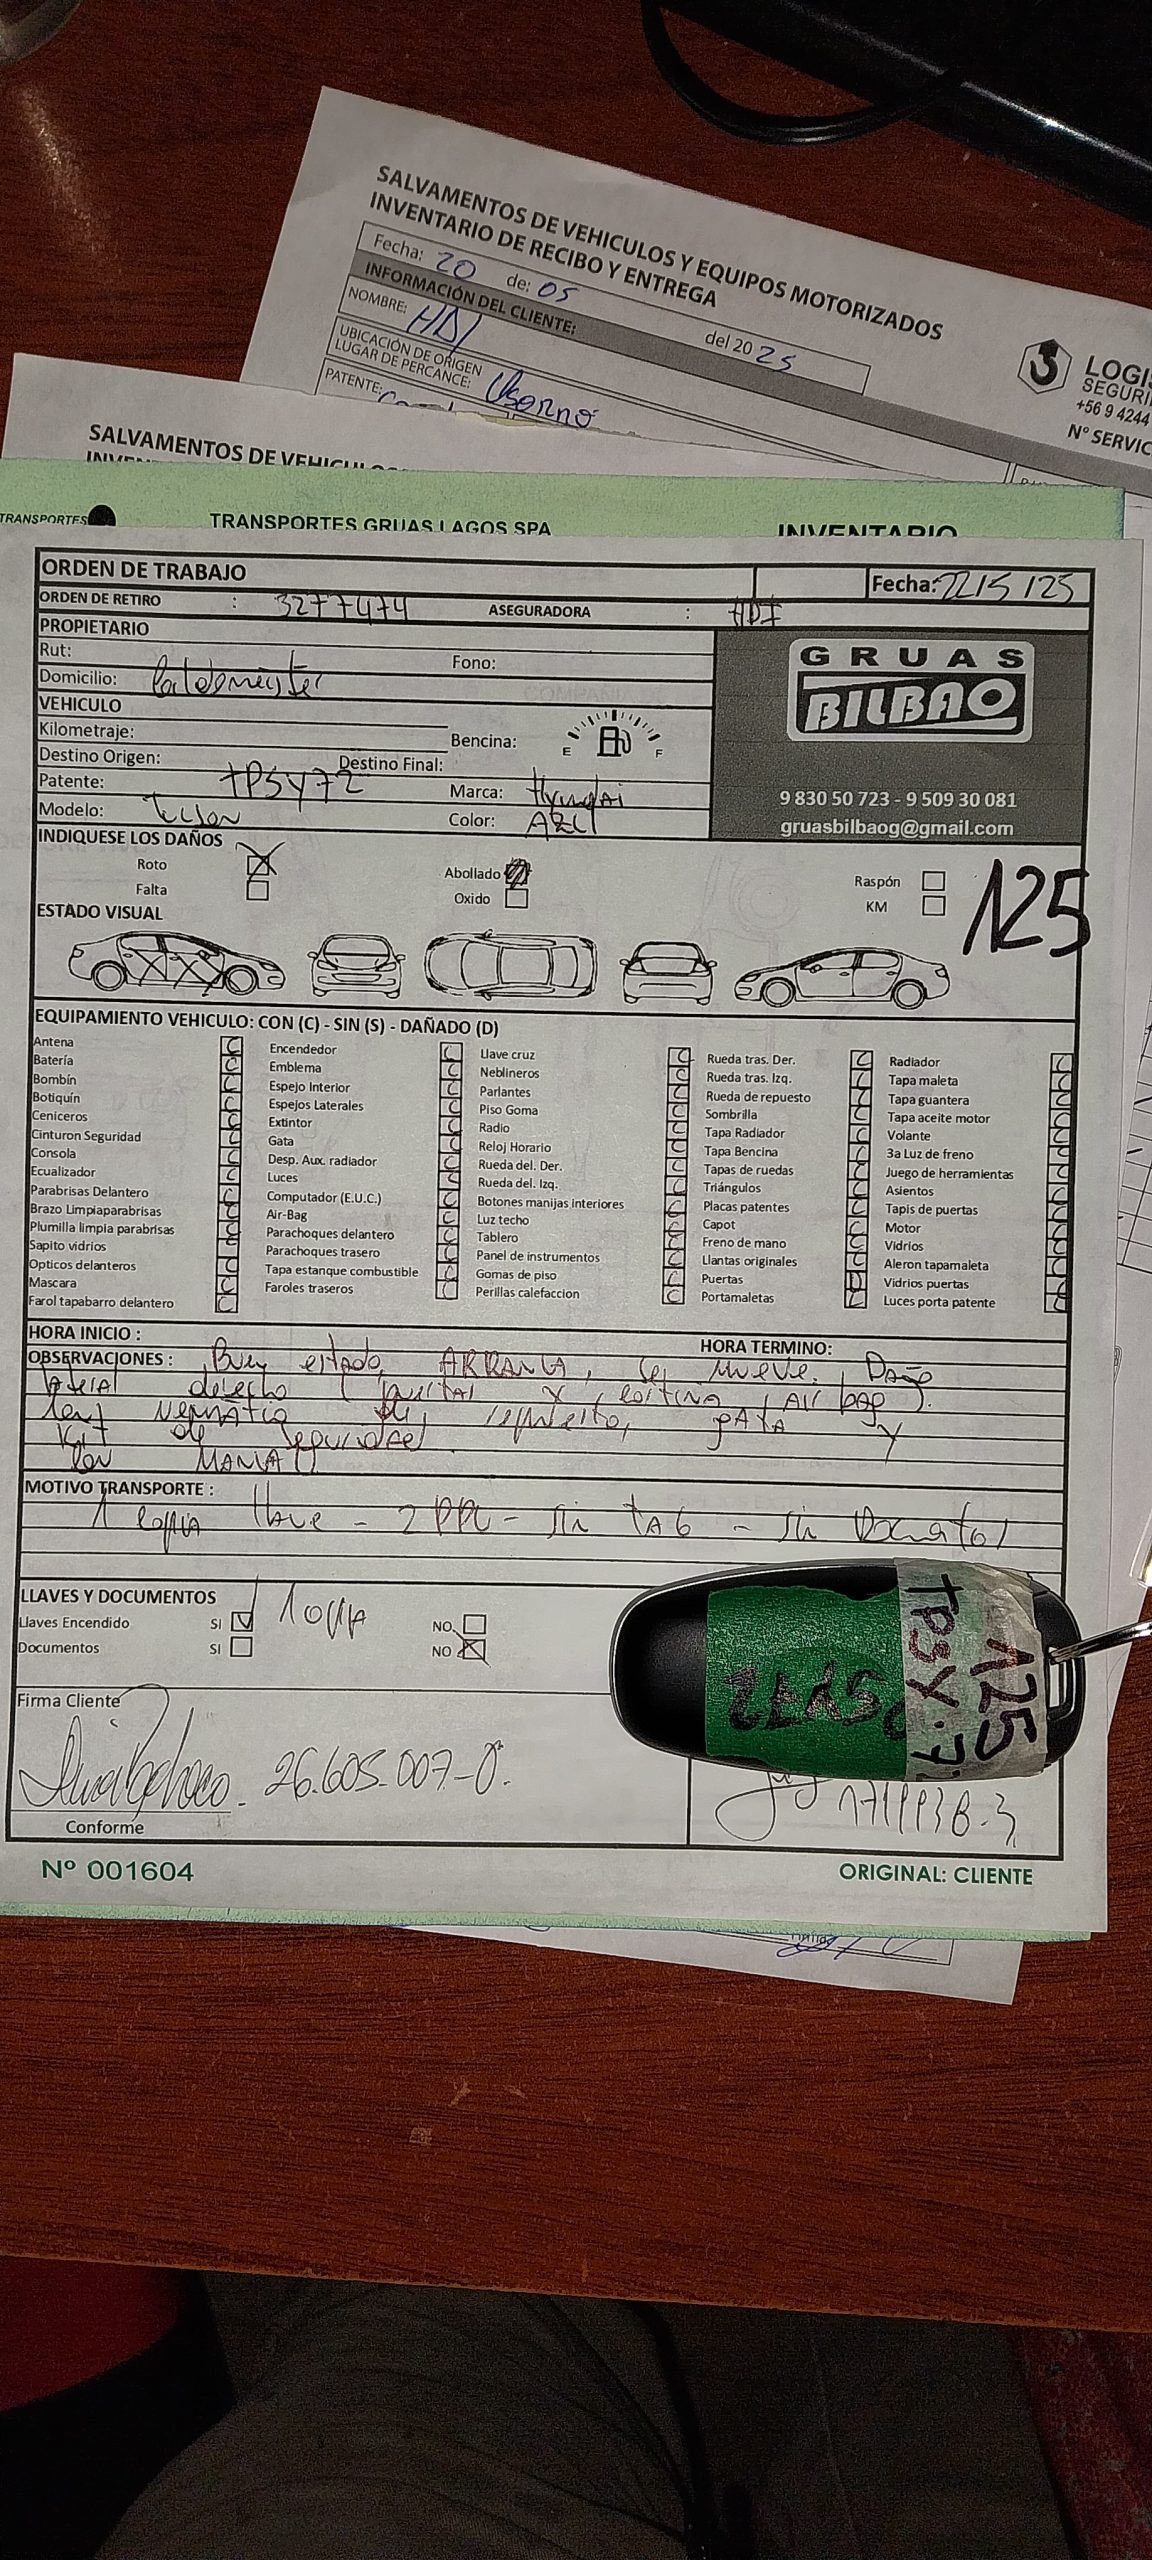 SALVAMENTOS DE VEHICULOS Y EQUIPOS MOTORIZADOS
INVENTARIO DE RECIBO Y ENTREGA
Fecha: 20 de: 05 del 20 25
INFORMACIÓN DEL CLIENTE:
NOMBRE: HDI
UBICACIÓN DE ORIGEN
LUGAR DE PERCANCE: Osorno
PATENTE:
+56 9 4244
SALVAMENTOS DE VEHICULOS
TRANSPORTES
TRANSPORTES GRUAS LAGOS SPA
INVENTARIO
ORDEN DE TRABAJO
Fecha: 22/5/25
ORDEN DE RETIRO : 3277474 ASEGURADORA : HDI
PROPIETARIO
Rut: Fono:
Domicilio:
VEHICULO
Kilometraje: Bencina: E F
Destino Origen: Destino Final:
Patente: TPSY72 Marca: Hyundai
Modelo: Tucson Color: Azul
GRUAS
BILBAO
9 830 50 723 - 9 509 30 081
gruasbilbaog@gmail.com
INDIQUESE LOS DAÑOS
Roto Abollado Raspón
Falta Oxido KM
125
ESTADO VISUAL
EQUIPAMIENTO VEHICULO: CON (C) - SIN (S) - DAÑADO (D)
Antena C
Batería C
Bombín C
Botiquín C
Ceniceros C
Cinturon Seguridad C
Consola C
Ecualizador C
Parabrisas Delantero C
Brazo Limpiaparabrisas C
Plumilla limpia parabrisas C
Sapito vidrios C
Opticos delanteros C
Mascara C
Farol tapabarro delantero C
Encendedor C
Emblema C
Espejo Interior C
Espejos Laterales C
Extintor C
Gata C
Desp. Aux. radiador C
Luces C
Computador (E.U.C.) C
Air-Bag C
Parachoques delantero C
Parachoques trasero C
Tapa estanque combustible C
Faroles traseros C
Llave cruz C
Neblineros C
Parlantes C
Piso Goma C
Radio C
Reloj Horario C
Rueda del. Der. C
Rueda del. Izq. C
Botones manijas interiores C
Luz techo C
Tablero C
Panel de instrumentos C
Gomas de piso C
Perillas calefaccion C
Rueda tras. Der. C
Rueda tras. Izq. C
Rueda de repuesto C
Sombrilla C
Tapa Radiador C
Tapa Bencina C
Tapas de ruedas C
Triángulos C
Placas patentes C
Capot C
Freno de mano C
Llantas originales C
Puertas D
Portamaletas C
Radiador C
Tapa maleta C
Tapa guantera C
Tapa aceite motor C
Volante C
3a Luz de freno C
Juego de herramientas C
Asientos C
Tapis de puertas C
Motor C
Vidrios C
Aleron tapamaleta C
Vidrios puertas C
Luces porta patente C
HORA INICIO : HORA TERMINO:
OBSERVACIONES : Buen estado, ARRANCA, se mueve. Daño
lateral derecho ( puertas y cortina air bag ).
neumático de repuesto, gata y
Kit de seguridad
MANUAL
MOTIVO TRANSPORTE :
1 copia llave - 2 PPU - sin TAG - sin Documentos
LLAVES Y DOCUMENTOS
Llaves Encendido SI 1 copia NO
Documentos SI NO
Firma Cliente
26.605.007-0.
Conforme
125
TPSY.72
Nº 001604
ORIGINAL: CLIENTE